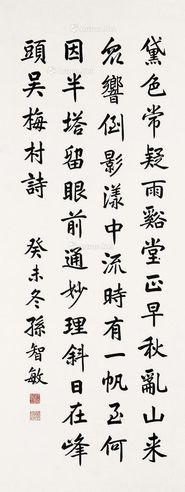 黛色常疑雨谿堂正早秋亂山来
眾響倒影漾中流時有一帆至何
因半塔留眼前通妙理斜日在峰
頭吳梅村詩
癸未冬孫智敏